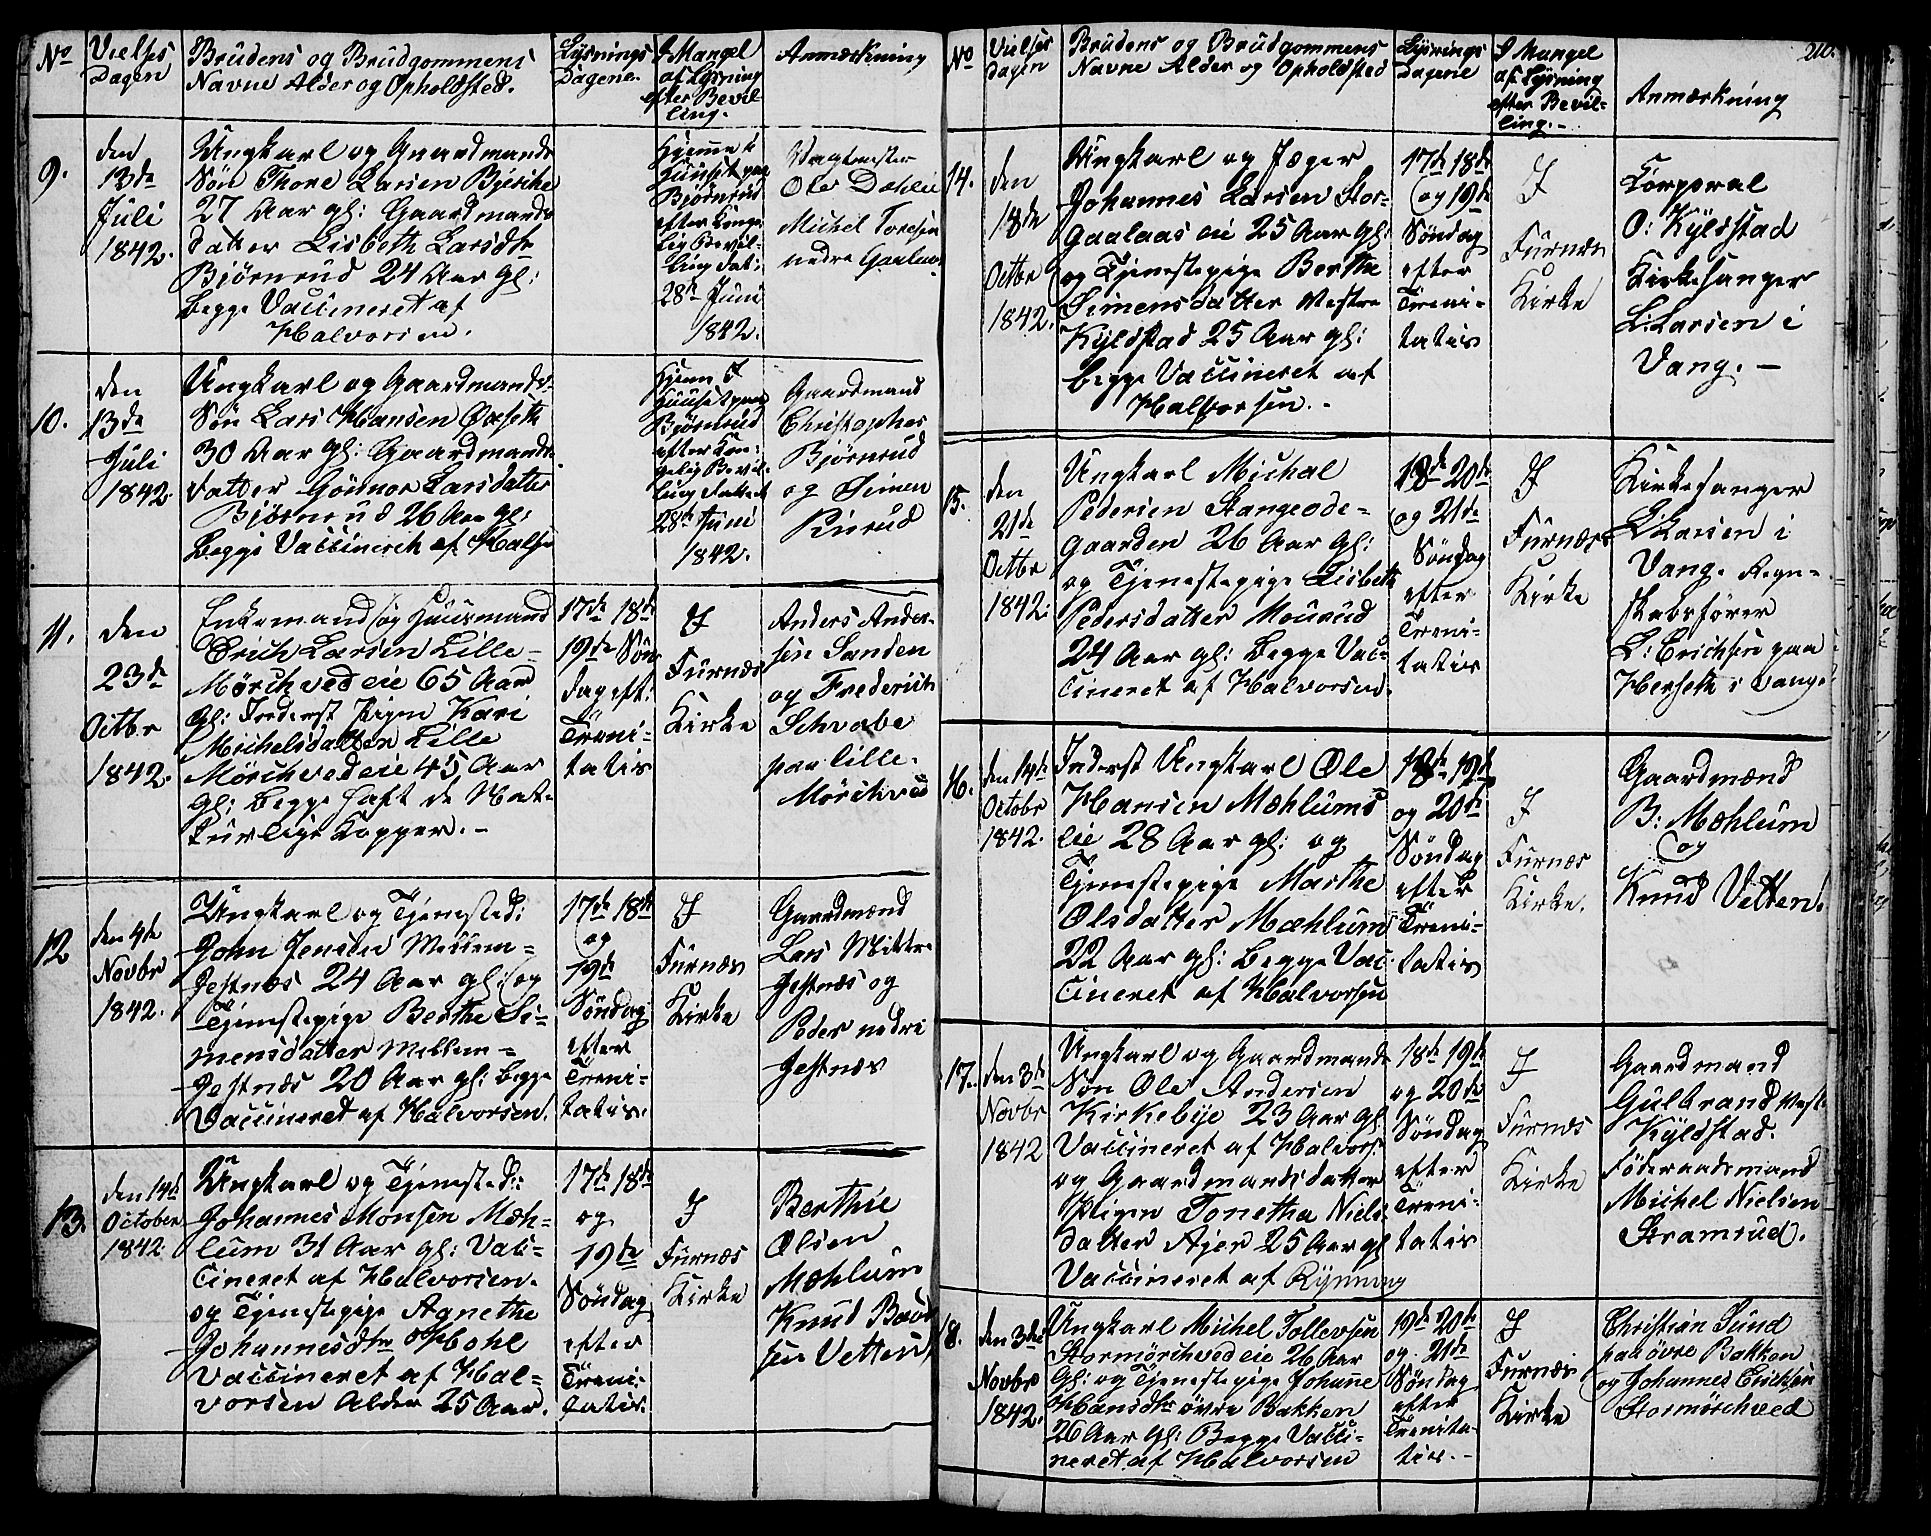 No
Vielses
Dagen
Brudens og Brudgommens
Navne Alder og Opholdsted.
Lysnings
Dagene.
I Mangel
af Lysning
efter Bevil-
ling.
Anmærkning
9.
den
13de
Juli
1842.
Ungkarl og Gaardmands
Søn Thore Larsen Bjerche
27 Aar gl: Gaardmands
datter Lisbeth Larsdtr
Bjørnrud 24 Aar gl:
Begge Vaccineret af
Halvorsen.
Hjemme i
Huuset paa
Bjørnrud
efter Konge
lig Bevil-
ling dat:
28de Juni
1842.
Vagtmester
Ole Dæhlie
Michel Toresen
nedre
10.
den
13de
Juli
1842.
Ungkarl og Gaardmands-
Søn Lars Hansen Oxseth
30 Aar gl: Gaardmands
datter Gounor Larsdatter
Bjørnrud 26 Aar gl:
Begge Vaccineret af
Hjem I
Huuset paa
Bjørnrud
efter Kon-
gelig Bevil-
ling datteret
28de Juni
1842.
Gaardmand
Christopher
Bjørnrud
og Simen
11.
den
23de
Octbr
1842.
Enkemand og Huusmand
Erich Larsen Lille-
Mørchved eie 65 Aar
gl: Inderst Pigen Kari
Michelsdatter Lille
Mørchved eie 45 Aar
gl: Begge haft de Nat-
turlige Kopper. -
17de 18de
19de Søn
dag eft:
Treni-
tatis
I
Furnæs
Kirke
Anders Ander-
sen Sanden
og Frederich
Schvabe
paa Lille-
Mørchved
12
den 4de
Novbr
1842.
Ungkarl og Tjenested:
John Jensen Mellem-
Jestnæs 24 Aar gl: og
Tjenestepige Berthe Si-
mensdatter Mellem-
Jestnæs 20 Aar gl: Begge
Vaccineret af Halvorsen.
17de 18de
og
19de
Søndag
efter
Treni-
tatis.
I
Furnæs
Kirke
Gaardmænd
Lars Mittre
Jestnæs og
Peder nedre
Jestnæs
13.
den 14de
October
1842.
Ungkarl og Tjenested:
Johannes Monsen Mæh-
lum 31 Aar gl: Vac-
cineret af Halvorsen.
og Tjenestepige Agnethe
Johannesdtr Hohl
Vaccineret af Hal-
vorsen Alder 25 Aar.
17de 18de
og
19de
Søndag
efter
Treni-
tatis.
I
Furnæs
Kirke
Berthie
Olsen
Mæhlum
Knud
sen Vetten
No
Vielses
Dagen
Brudens og Brudgommens
Navne Alder og Opholdsted
Lysnings
Dagene
I Mangel
af Lysning
efter Bevil-
ling. -
Anmærkning
210.
14.
den
18de
Octbr
1842.
Ungkarl og Jæger
Johannes Larsen Stor-
gaalaas eie 25 Aar gl:
og Tjenestepige Berthe
Simensdatter Vestre
Kyldstad 25 Aar gl:
Begge Vaccineret af
Halvorsen. -
17de 18de
og 19de
Søndag
efter
Treni-
tatis
I
Furnæs
Kirke
Corporal
O: Kyldstad
Kirkesanger
L: Larsen i
Vang. -
15.
den
21de
Octbr
1842.
Ungkarl Michal
Pedersen Stangeode-
gaarden 26 Aar gl:
og Tjenestepige Lisbeth
Pedersdatter Mourud
24 Aar gl: Begge Vac-
cineret af Halvorsen.
20de
og 21de
Søndag
efter
Treni-
tatis
I
Furnæs
Kirke
Kirkesanger
L: Larsen i
Vang. Regn-
skabsfører
L: Erichsen paa
Herseth i Vang.
16.
den 14de
Octobr
1842.
Inderst Ungkarl Ole
Hansen Mæhlums
eie 28 Aar gl: og
Tjenestepige Marthe
Olsdatter Mæhlum
22 Aar gl: Begge Vac-
cineret af Halvorsen
18de 19de
og 20de
Søndag
efter
Treni-
tatis
I
Furnæs
Kirke.
Gaardmænd
B: Mæhlum
og
Knud Vetten.
17.
den 3de
Novbr
1842
Ungkarl og Gaardmands
Søn Ole Andersen
Kirkebye 23 Aar gl:
Vaccineret af Halvors:
og Gaardmandsdatter
Pigen Tonetha Niels
datter Ajer 25 Aar gl
Vaccineret af Rynning
18de 19de
og 20de
Søndag
efter
Treni-
tatis
I
Furnæs
Kirke
Gaardmand
Gulbrand Vest.
Kyldstad.
Föderaadsmand
Michel Nielsen
Stramrud.
18.
den 3de
Novbr
1842.
Ungkarl Michel Tollevsen
Stormörchved eie 26 Aar
gl: og Tjenestepige Johanne
Hansdtr övre Bakken
26 Aar gl: Begge Vacci-
neret af Halvorsen
19de 20de
og 21de
Søndag
efter
Trenita-
tis. -
I
Furnæs
Kirke
Christian Sund
paa övre Bakken
og Johannes Ericksen
Stormörchved